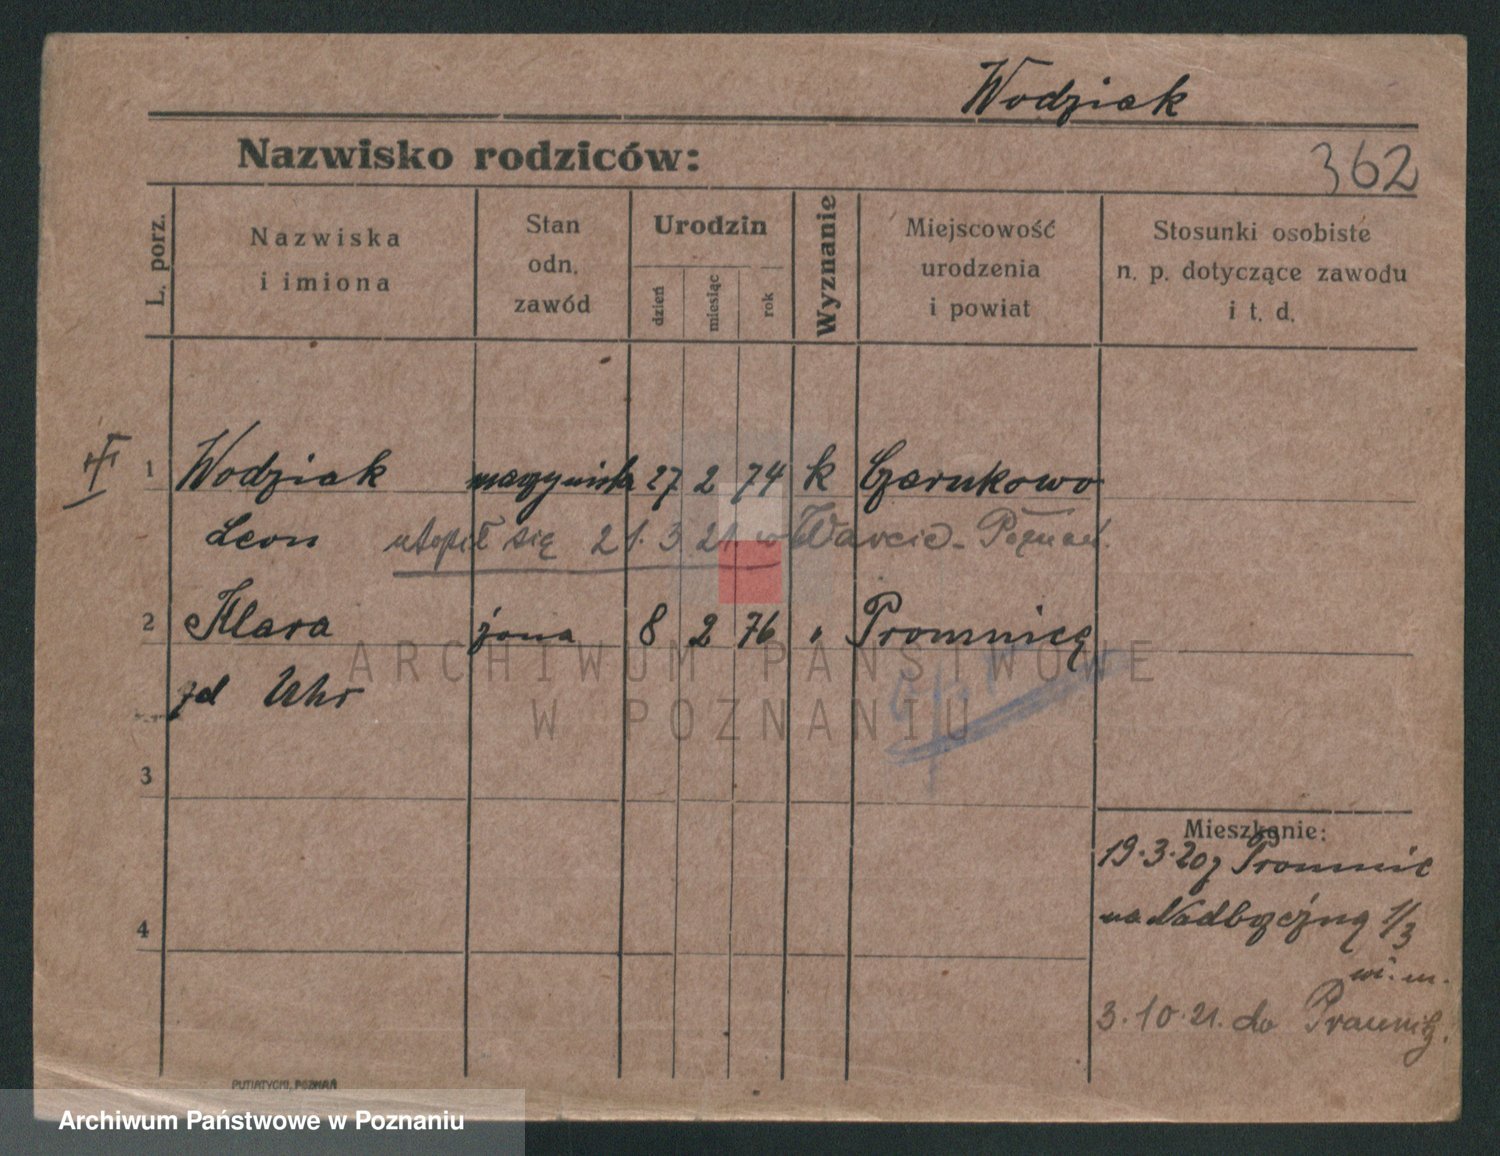 Wodziak
Nazwisko rodziców:
362
L. porz.
Nazwiska
i imiona
Stan
odn.
zawód
Urodzin
dzień
miesiąc
rok
Wyznanie
Miejscowość
urodzenia
i powiat
Stosunki osobiste
n. p. dotyczące zawodu
i t. d.
1 Wodziak 27 2 74 k Czarnkowo
Leon utopił się 21. 3 21 w Warcie - Poznań.
2 Klara żona 8 2 76 " Promnicę
zd Uhr
3
4
Mieszkanie:
19.3.20 z Promnic
na 1/3
3.10.21. do
PUTIATYCKI, POZNAŃ
ARCHIWUM PAŃSTWOWE
W POZNANIU
Archiwum Państwowe w Poznaniu